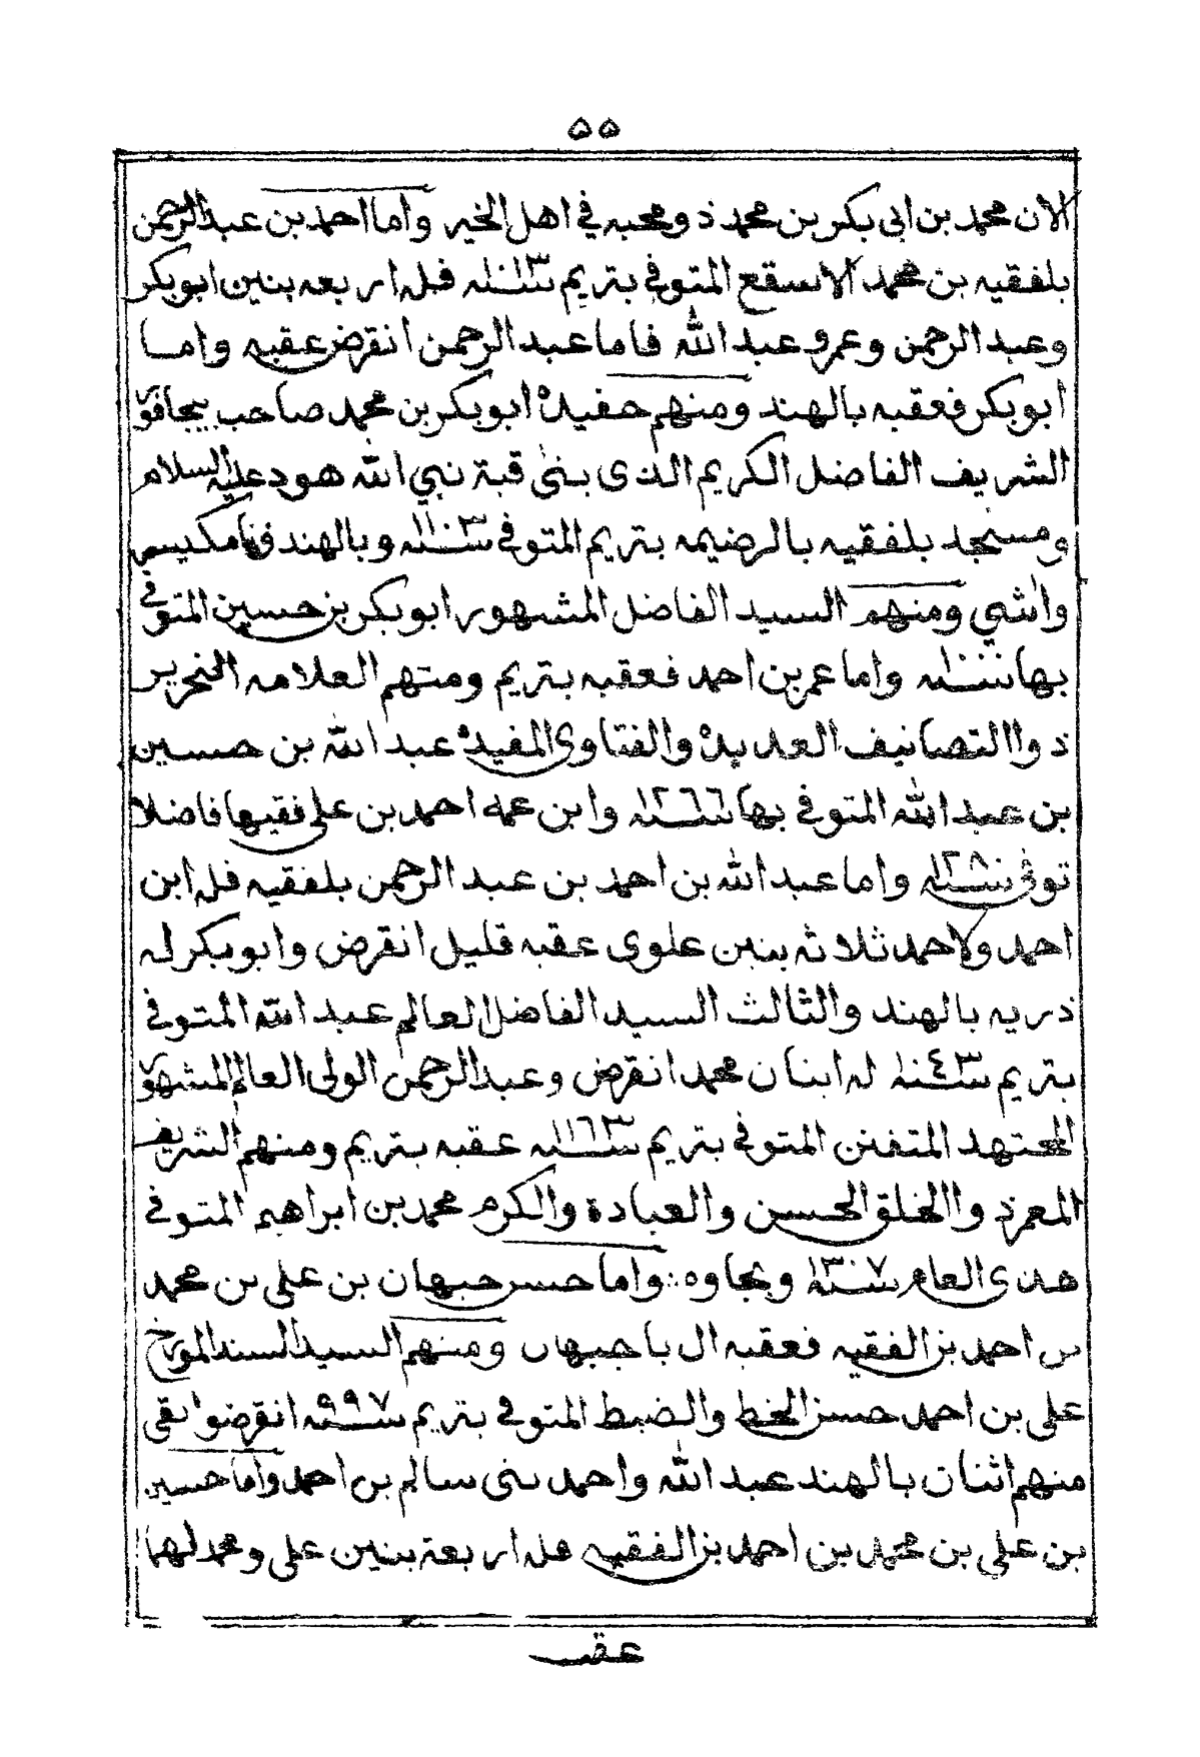 ٥٥
الان محمد بن ابي بكر بن محمد ذو محبه في اهل الخير واما احمد بن عبدالرحمن
بلفقيه بن محمد الاسقع المتوفي بتريم سنة ١٠١٣ فله اربعه بنين ابوبكر
وعبد الرحمن وعمر وعبد الله فاما عبد الرحمن انقرض عقبه واما
ابوبكر فعقبه بالهند ومنهم حفيده ابوبكر بن محمد صاحب بيجافور
الشريف الفاضل الكريم الذى بنى قبة نبي الله هود عليه السلام
ومسجد بلفقيه بالرضيمه بتريم المتوفي سنة ١١٠٣ وبالهند
واشي ومنهم السيد الفاضل المشهور ابوبكر بن حسين المتوفي
بها سنة واما عمر بن احمد فعقبه بتريم ومنهم العلامه النحرير
ذوا التصانيف العديده والفتاوى المفيده عبد الله بن حسين
بن عبد الله المتوفي بها سنة ١٢٦٦ وابن عمه احمد بن علي فقيها فاضلا
توفي سنة ١٢٨٠ واما عبد الله بن احمد بن عبد الرحمن بلفقيه فله ابن
احمد ولاحمد ثلاثه بنين علوى عقبه قليل انقرض وابوبكر له
ذريه بالهند والثالث السيد الفاضل العالم عبد الله المتوفي
بتريم سنة ١٠٤٣ له ابنان محمد انقرض وعبد الرحمن الولى العالم المشهور
المجتهد المتفنن المتوفي بتريم سنة ١١٦٣ عقبه بتريم ومنهم الشريف
والخلق الحسن والعبادة والكرم محمد بن ابراهيم المتوفي
هذى العام سنة ١٣٠٧ واما حسن جبهان بن علي بن محمد
بن احمد بن الفقيه فعقبه ال باجبهان ومنهم السيد السند المورخ
علي بن احمد حسن الخط والضبط المتوفي بتريم سنة ٩٩٧ انقرضوا بقي
منهم اثنان بالهند عبد الله واحمد بنى سالم بن احمد واما حسين
بن علي بن محمد بن احمد بن الفقيه فله اربعة بنين علي ومحمد لهما
عقب